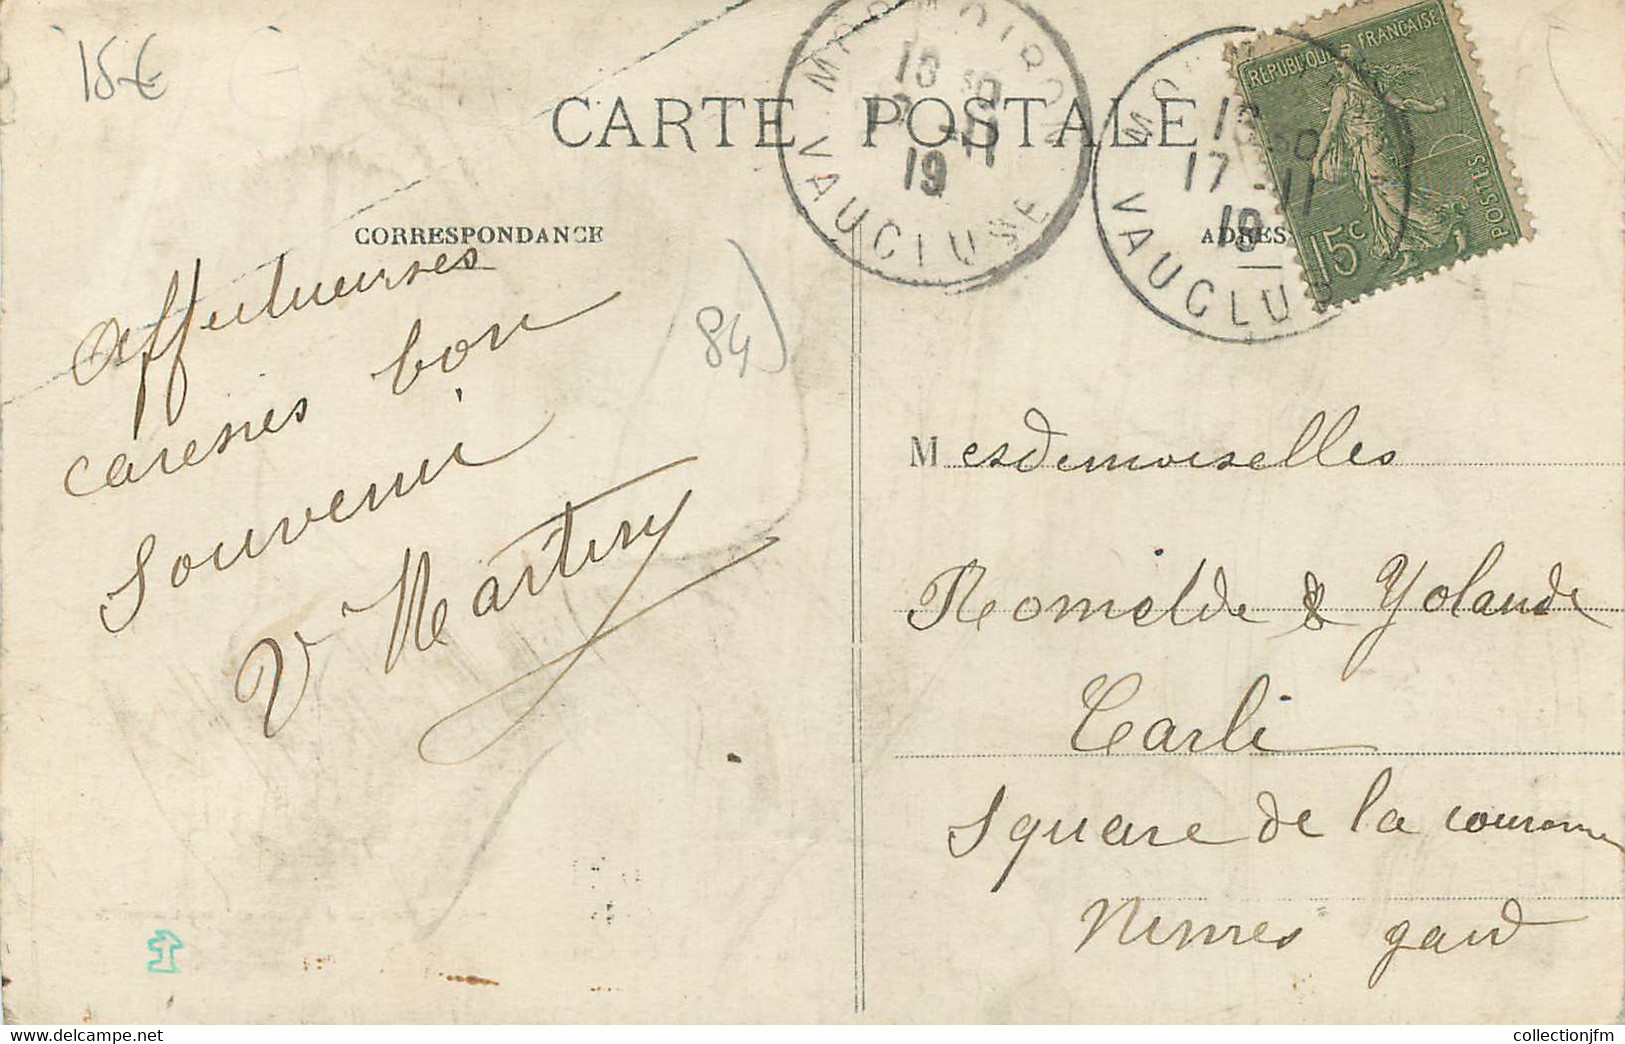 15€
CARTE POSTALE
MORMOIRON
18 30
17 -11
19
VAUCLUSE
18 30
17 -11
19
VAUCLUS
RÉPUBLIQUE FRANÇAISE
POSTES
15c
CORRESPONDANCE
ADRES
Affectueuses
caresses bon
souvenir
V Martiny
84
Mesdemoiselles
Romilde & Yolande
Carli
Square de la couronne
Nimes gard
collectionjfm